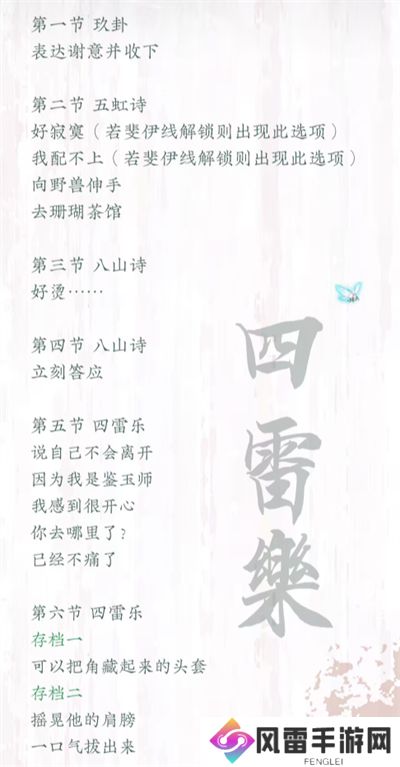 第一节 玖卦
表达谢意并收下
第二节 五虹诗
好寂寞（若斐伊线解锁则出现此选项）
我配不上（若斐伊线解锁则出现此选项）
向野兽伸手
去珊瑚茶馆
第三节 八山诗
好烫……
第四节 八山诗
立刻答应
第五节 四雷乐
说自己不会离开
因为我是鉴玉师
我感到很开心
你去哪里了？
已经不痛了
第六节 四雷乐
存档一
可以把角藏起来的头套
存档二
摇晃他的肩膀
一口气拔出来
四雷樂
风雷手游网
FENGLEI